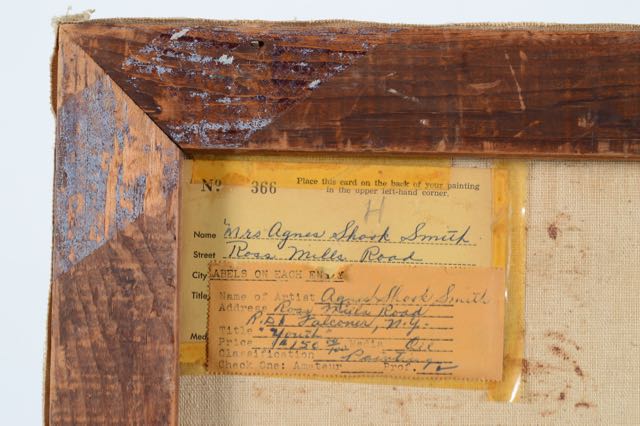 No 366 Place this card on the back of your painting
in the upper left-hand corner.
H
Name Mrs Agnes Shook Smith
Street Ross Mills Road
City
LABELS ON EACH ENTRY
Title
Name of Artist Agnes Shook Smith
Address Ross Mills Road
R.D.1 Falconer, N.Y.
Title "Youth"
Price $150 Media Oil
Classification Painting
Med
Check One: Amateur Prof.